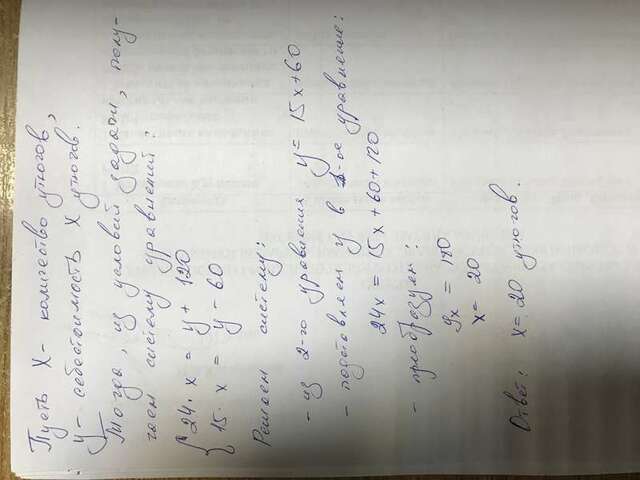 Пусть X - количество утюгов,
y - себестоимость X утюгов.
Тогда, из условий задачи, полу-
чаем систему уравнений:
{ 24 · x = y + 120
15 · x = y - 60
Решаем систему:
- из 2-го уравнения y = 15x+60
- подставляем y в 1-ое уравнение:
24x = 15x + 60 + 120
- преобразуем:
9x = 180
x = 20
Ответ: x = 20 утюгов.